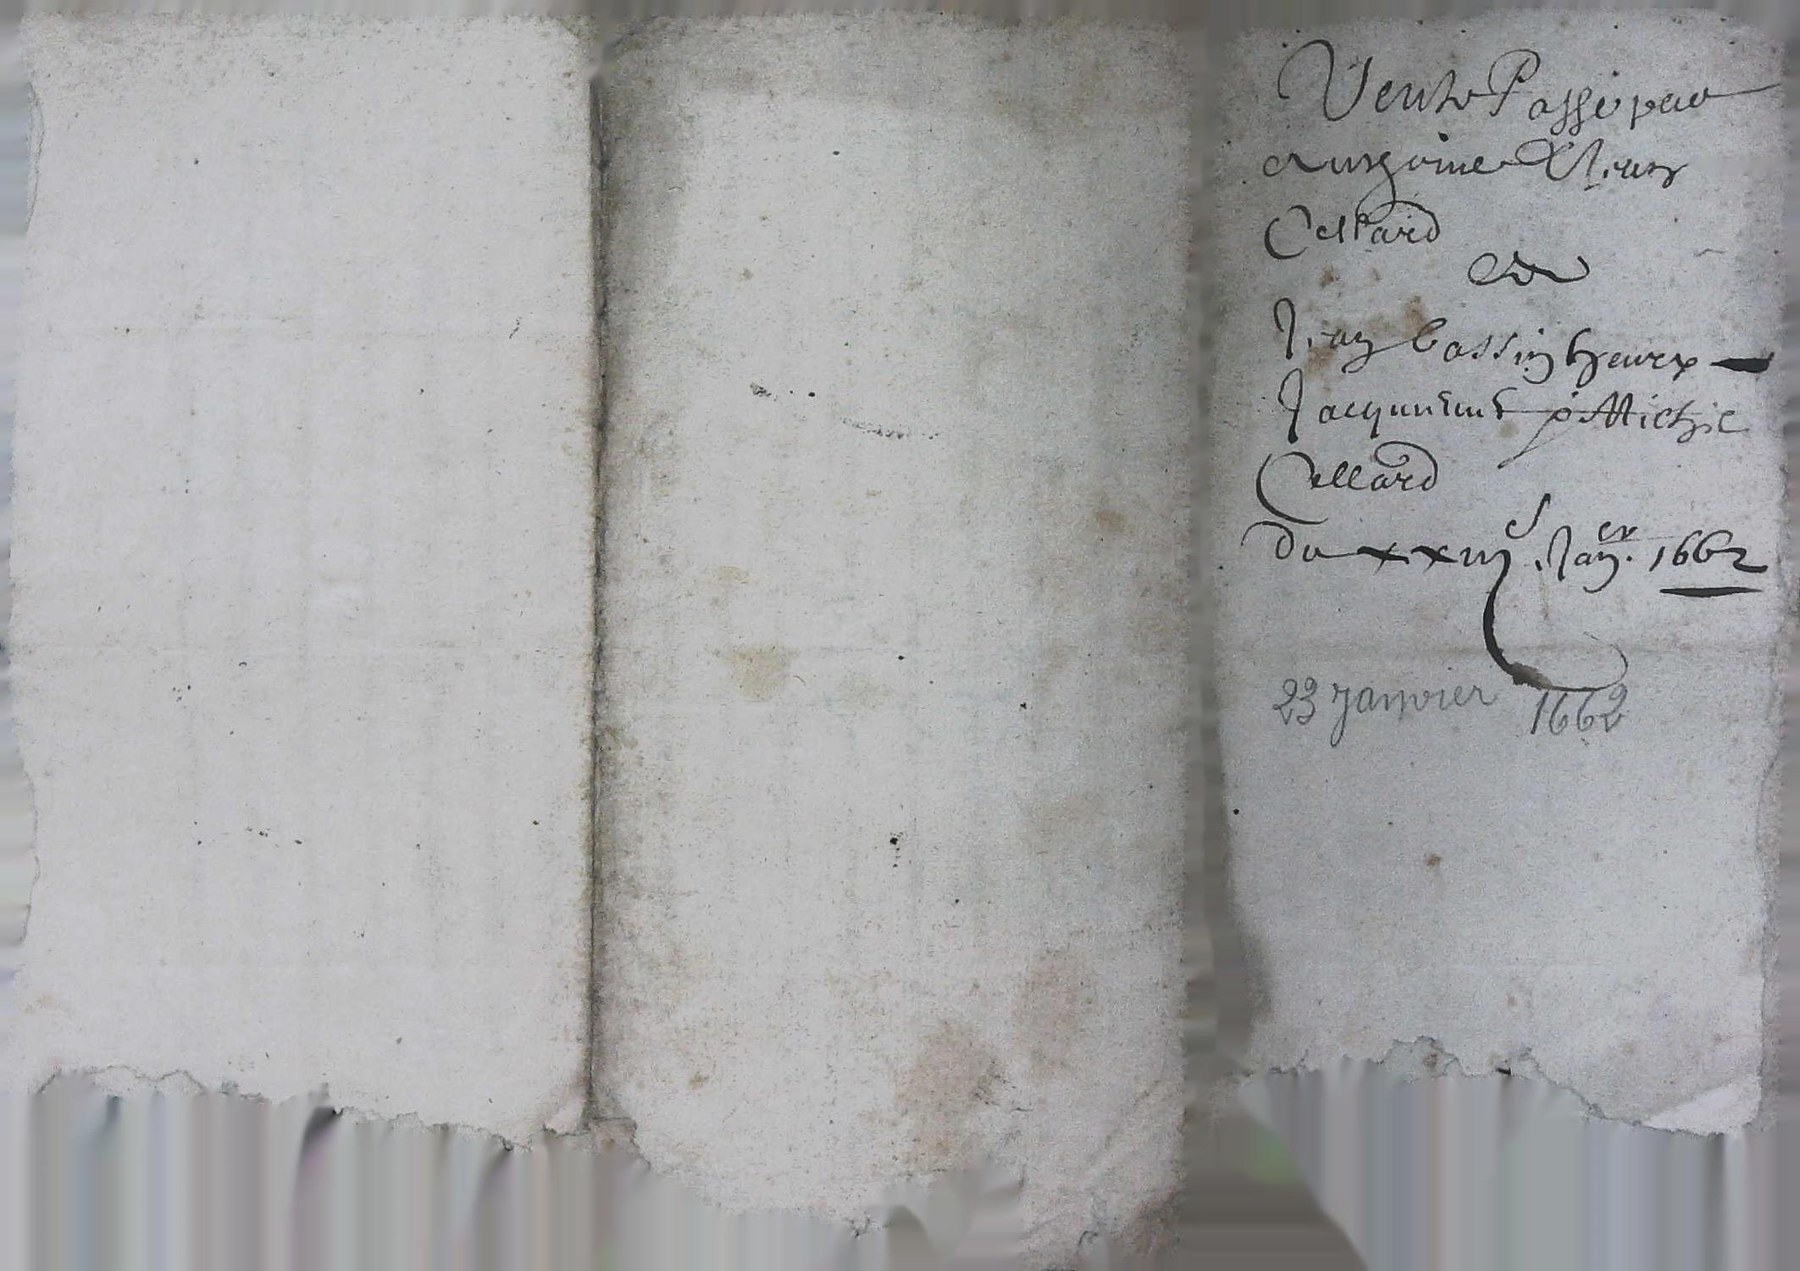 Vente Passé par
Anthoine & Jean
Cellard
A
Jean bassin heurx
Jacquement p Michie
Cellard
du xxiij Jan.er 1662
23 janvier 1662